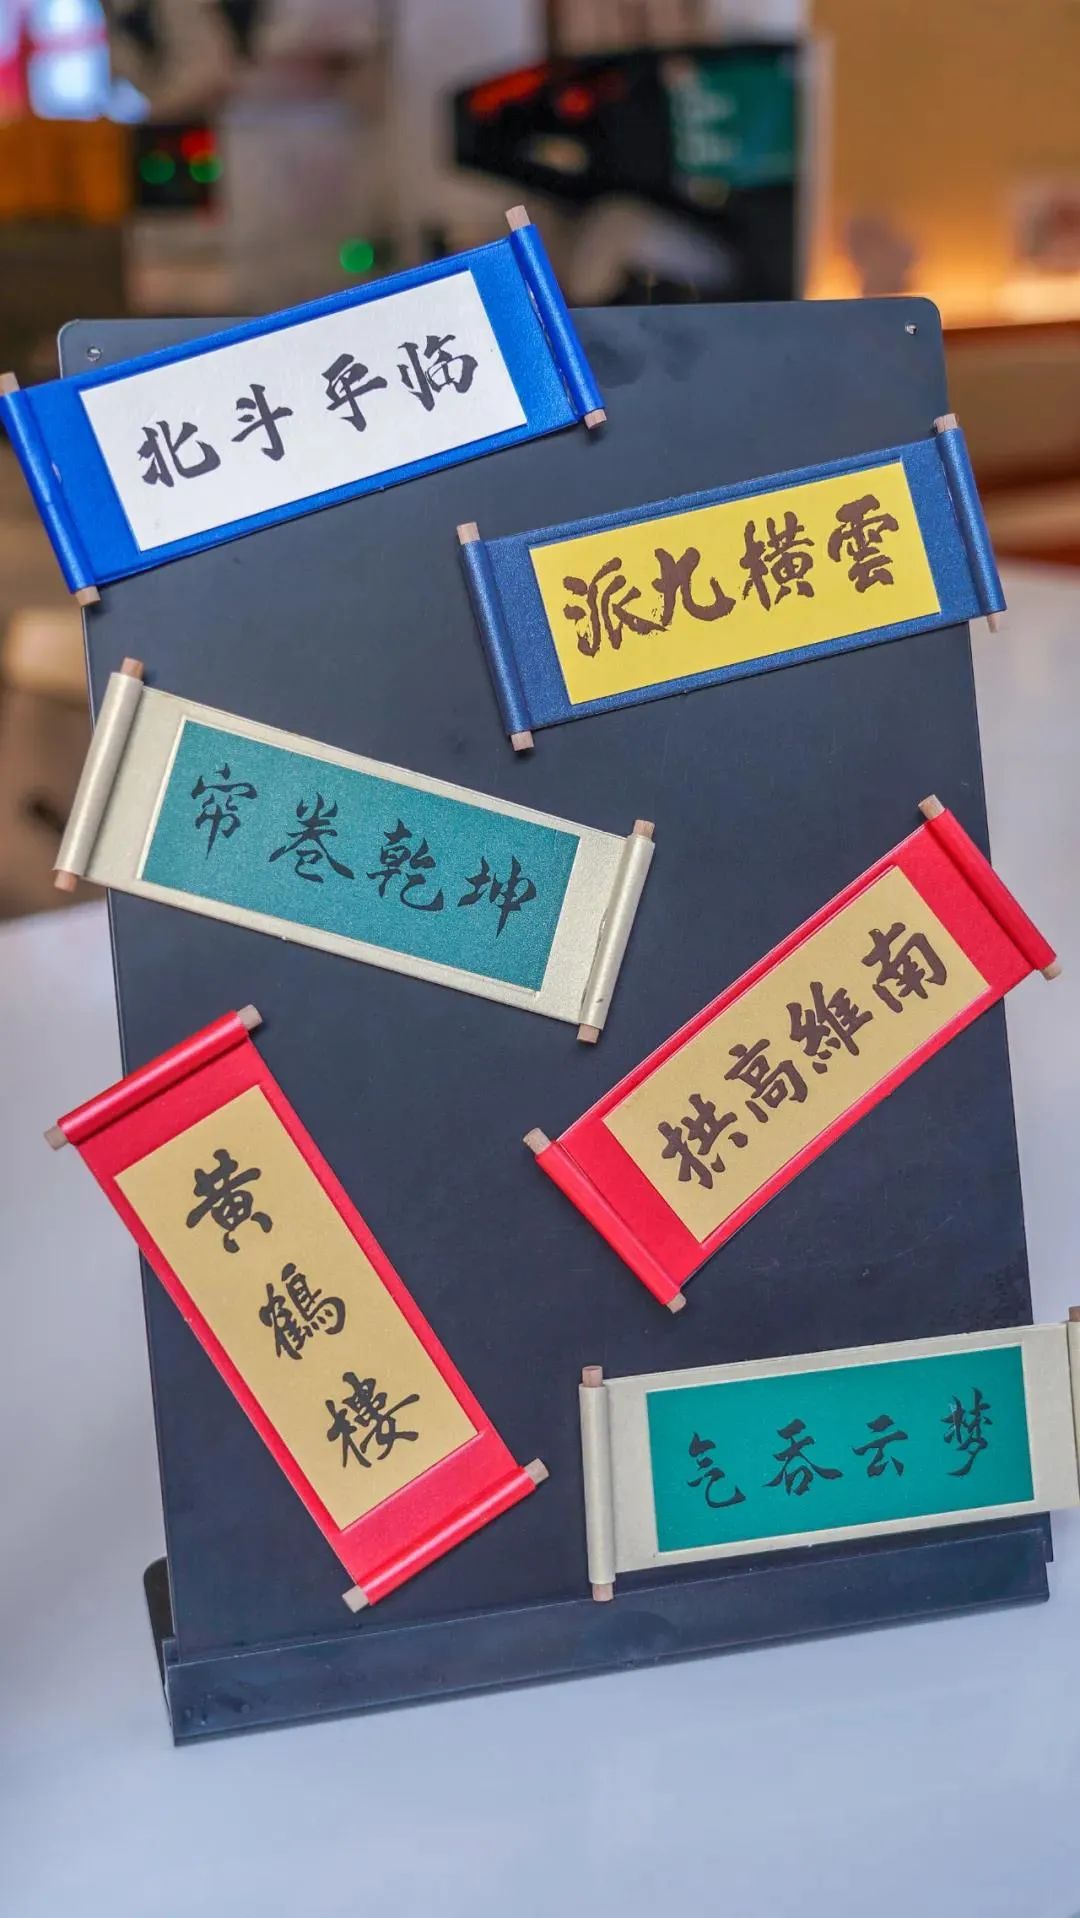 北斗平临
派九横雲
帘卷乾坤
拱高維南
黄鶴樓
气吞云梦